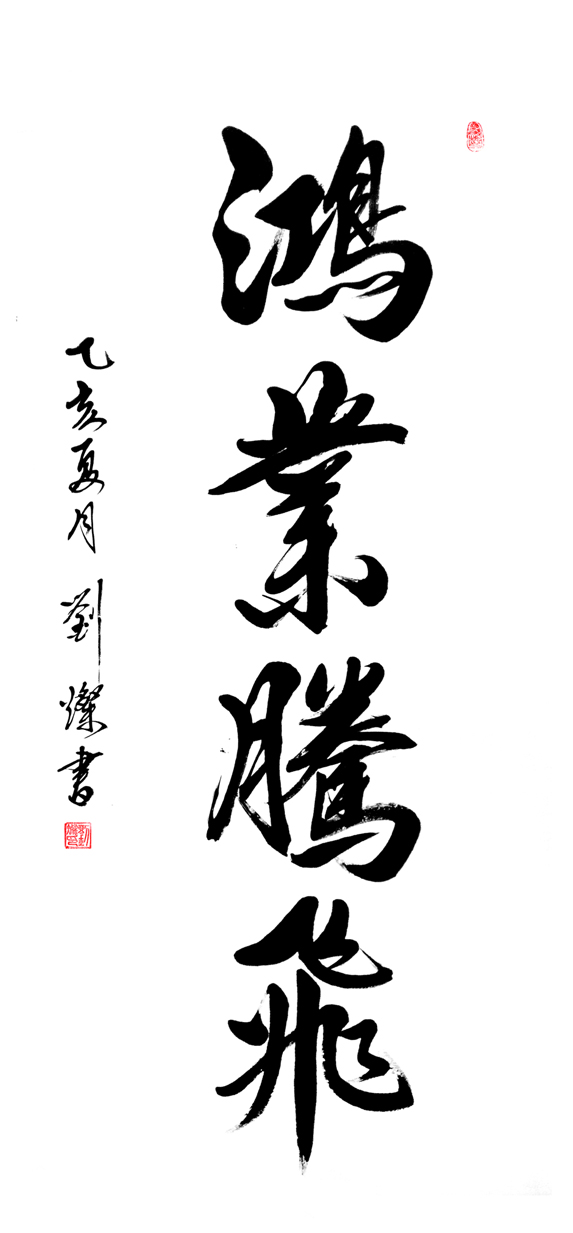 鴻業騰飛
乙亥夏月 劉燦書